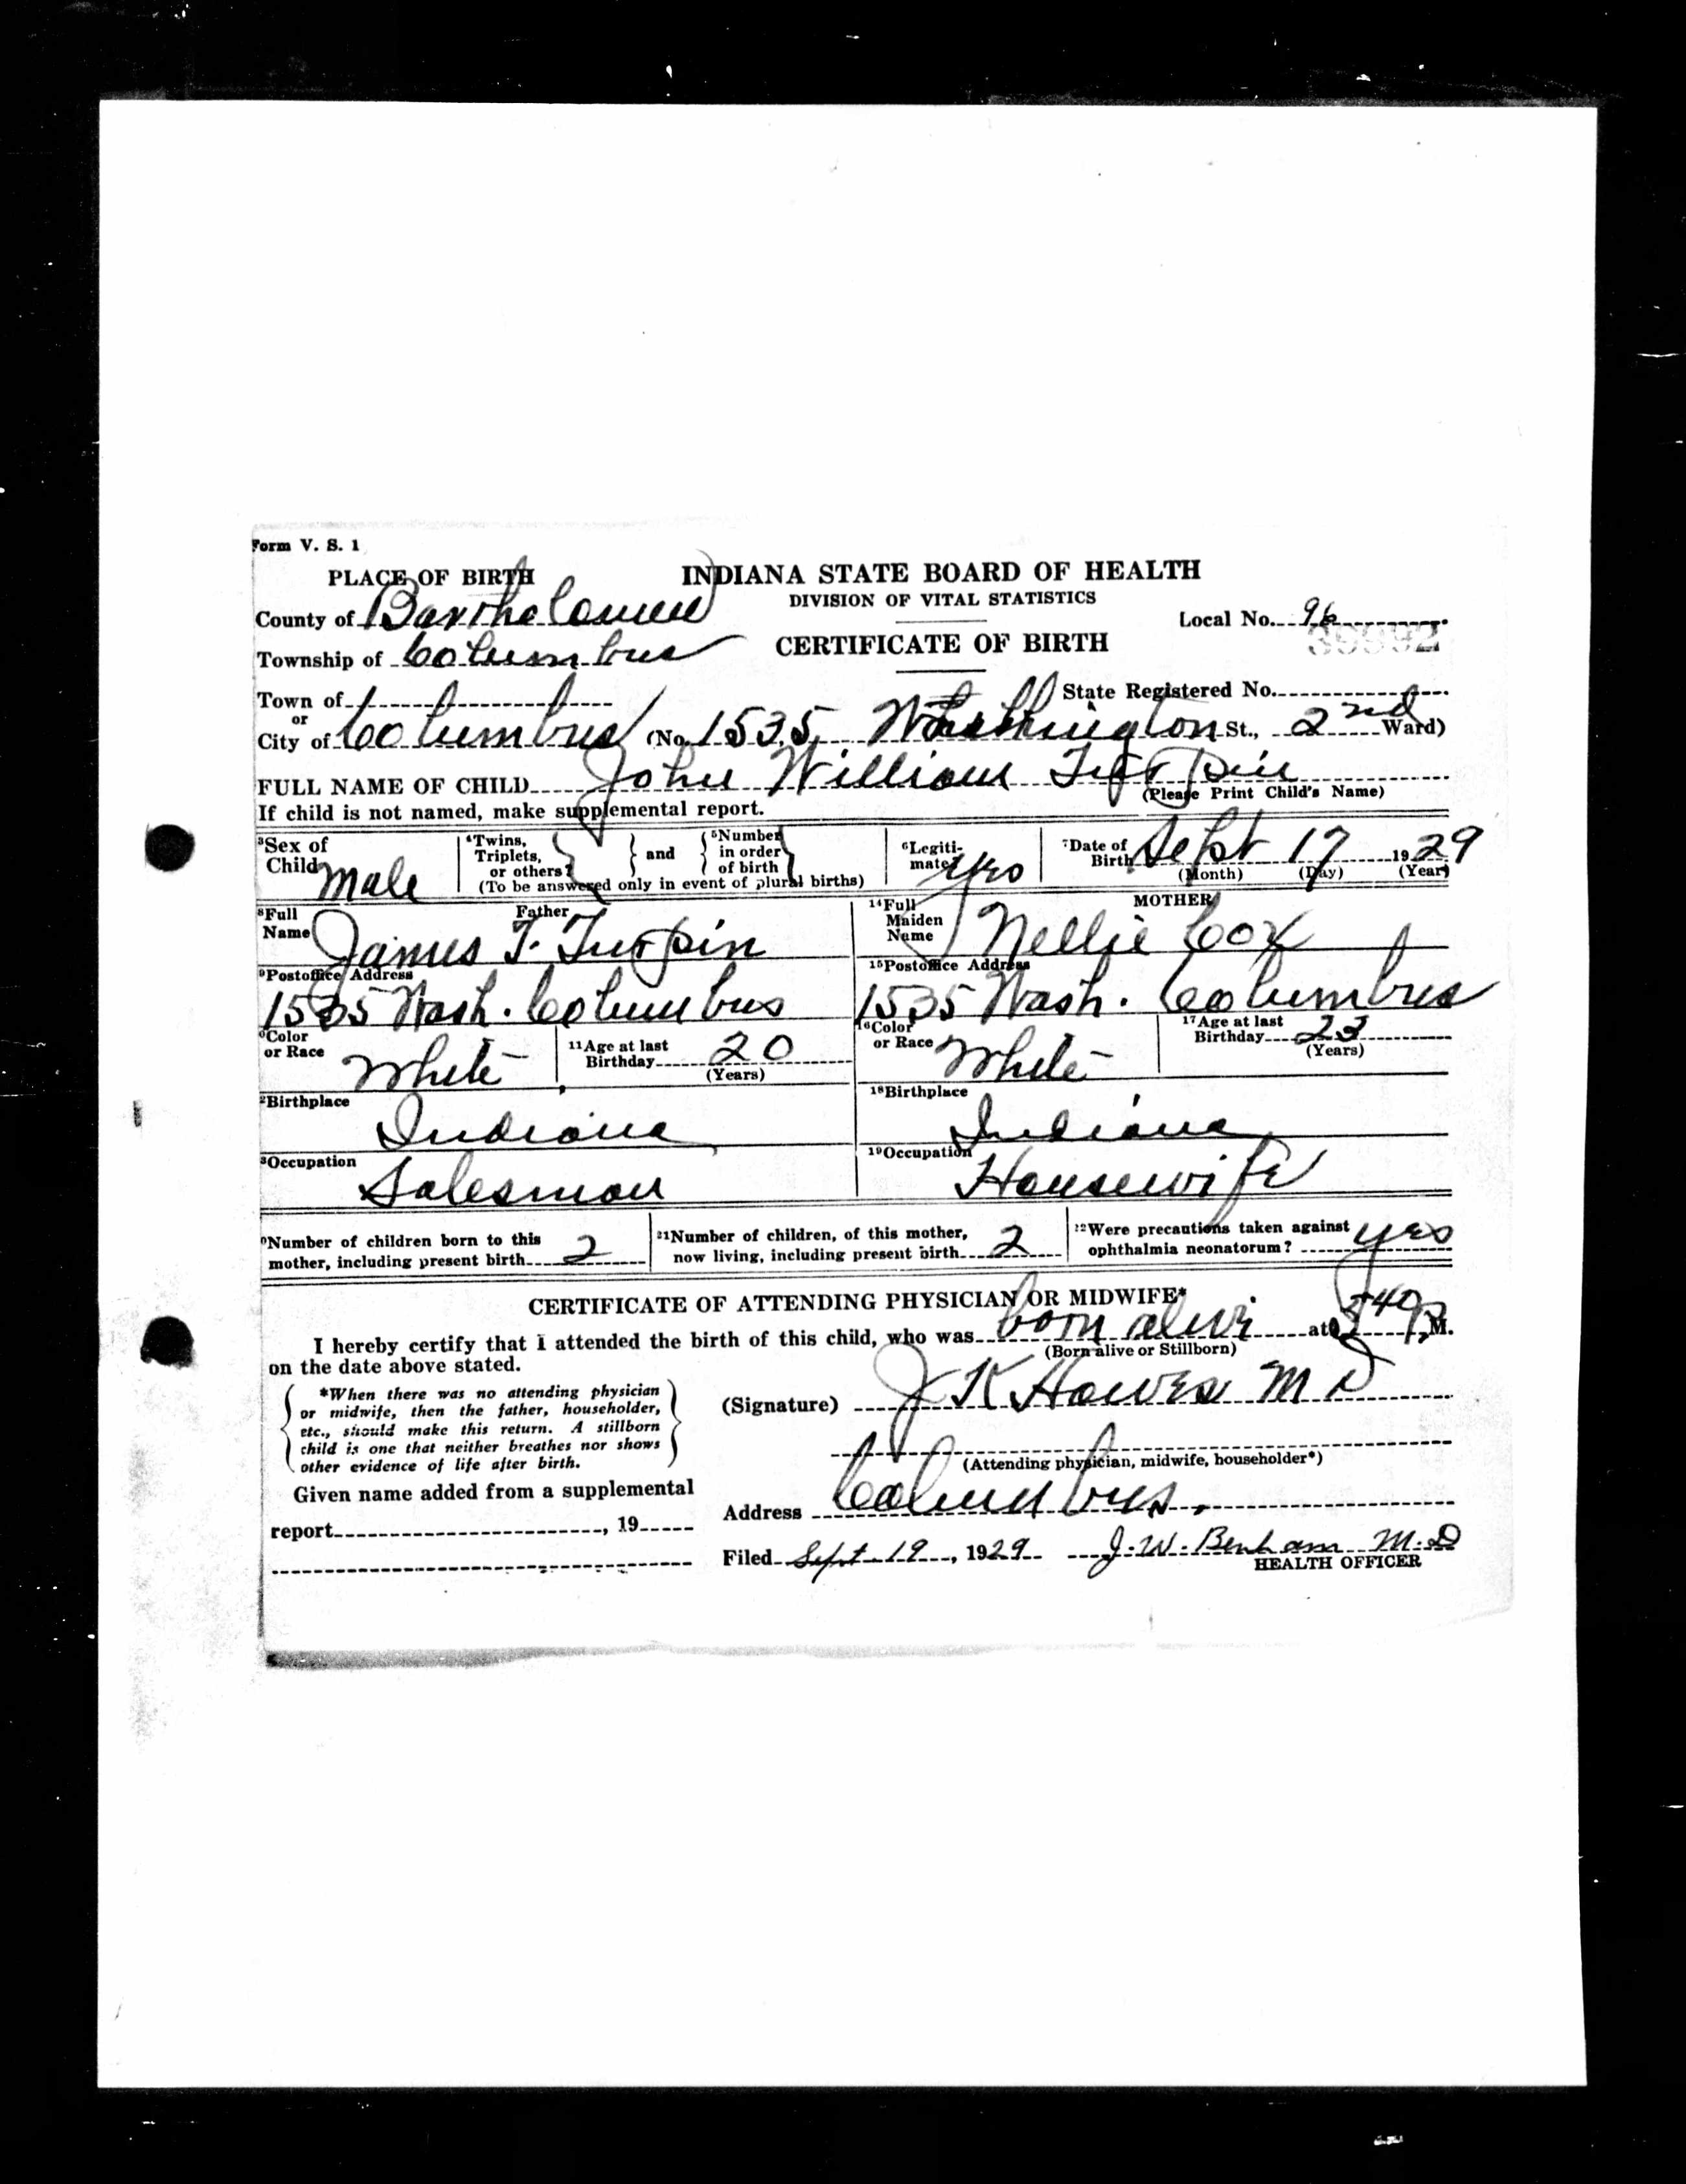 Form V. S. 1
PLACE OF BIRTH
INDIANA STATE BOARD OF HEALTH
DIVISION OF VITAL STATISTICS
County of Bartholomew
Local No. 96
CERTIFICATE OF BIRTH
Township of Columbus
State Registered No.
Town of
or
City of Columbus (No. 1535 Washington St., 2nd Ward)
FULL NAME OF CHILD John William Turpin
(Please Print Child's Name)
If child is not named, make supplemental report.
3Sex of Child Male
4Twins, Triplets, or others?
and
5Number in order of birth
(To be answered only in event of plural births)
6Legitimate? Yes
7Date of Birth Sept 17 1929
(Month) (Day) (Year)
8Full Name
Father
James T. Turpin
14Full Maiden Name
MOTHER
Nellie Cox
9Postoffice Address
1535 Wash. Columbus
15Postoffice Address
1535 Wash. Columbus
0Color or Race White
11Age at last Birthday 20
(Years)
16Color or Race White
17Age at last Birthday 23
(Years)
2Birthplace
Indiana
18Birthplace
Indiana
3Occupation
Salesman
19Occupation
Housewife
0Number of children born to this mother, including present birth 2
21Number of children, of this mother, now living, including present birth 2
22Were precautions taken against ophthalmia neonatorum? yes
CERTIFICATE OF ATTENDING PHYSICIAN OR MIDWIFE*
I hereby certify that I attended the birth of this child, who was born alive at 540 P.M.
(Born alive or Stillborn)
on the date above stated.
*When there was no attending physician
or midwife, then the father, householder,
etc., should make this return. A stillborn
child is one that neither breathes nor shows
other evidence of life after birth.
(Signature) J K Hawes M D
(Attending physician, midwife, householder*)
Given name added from a supplemental
report , 19
Address Columbus.
Filed Sept 19, 1929 J. W. Benham M.D
HEALTH OFFICER